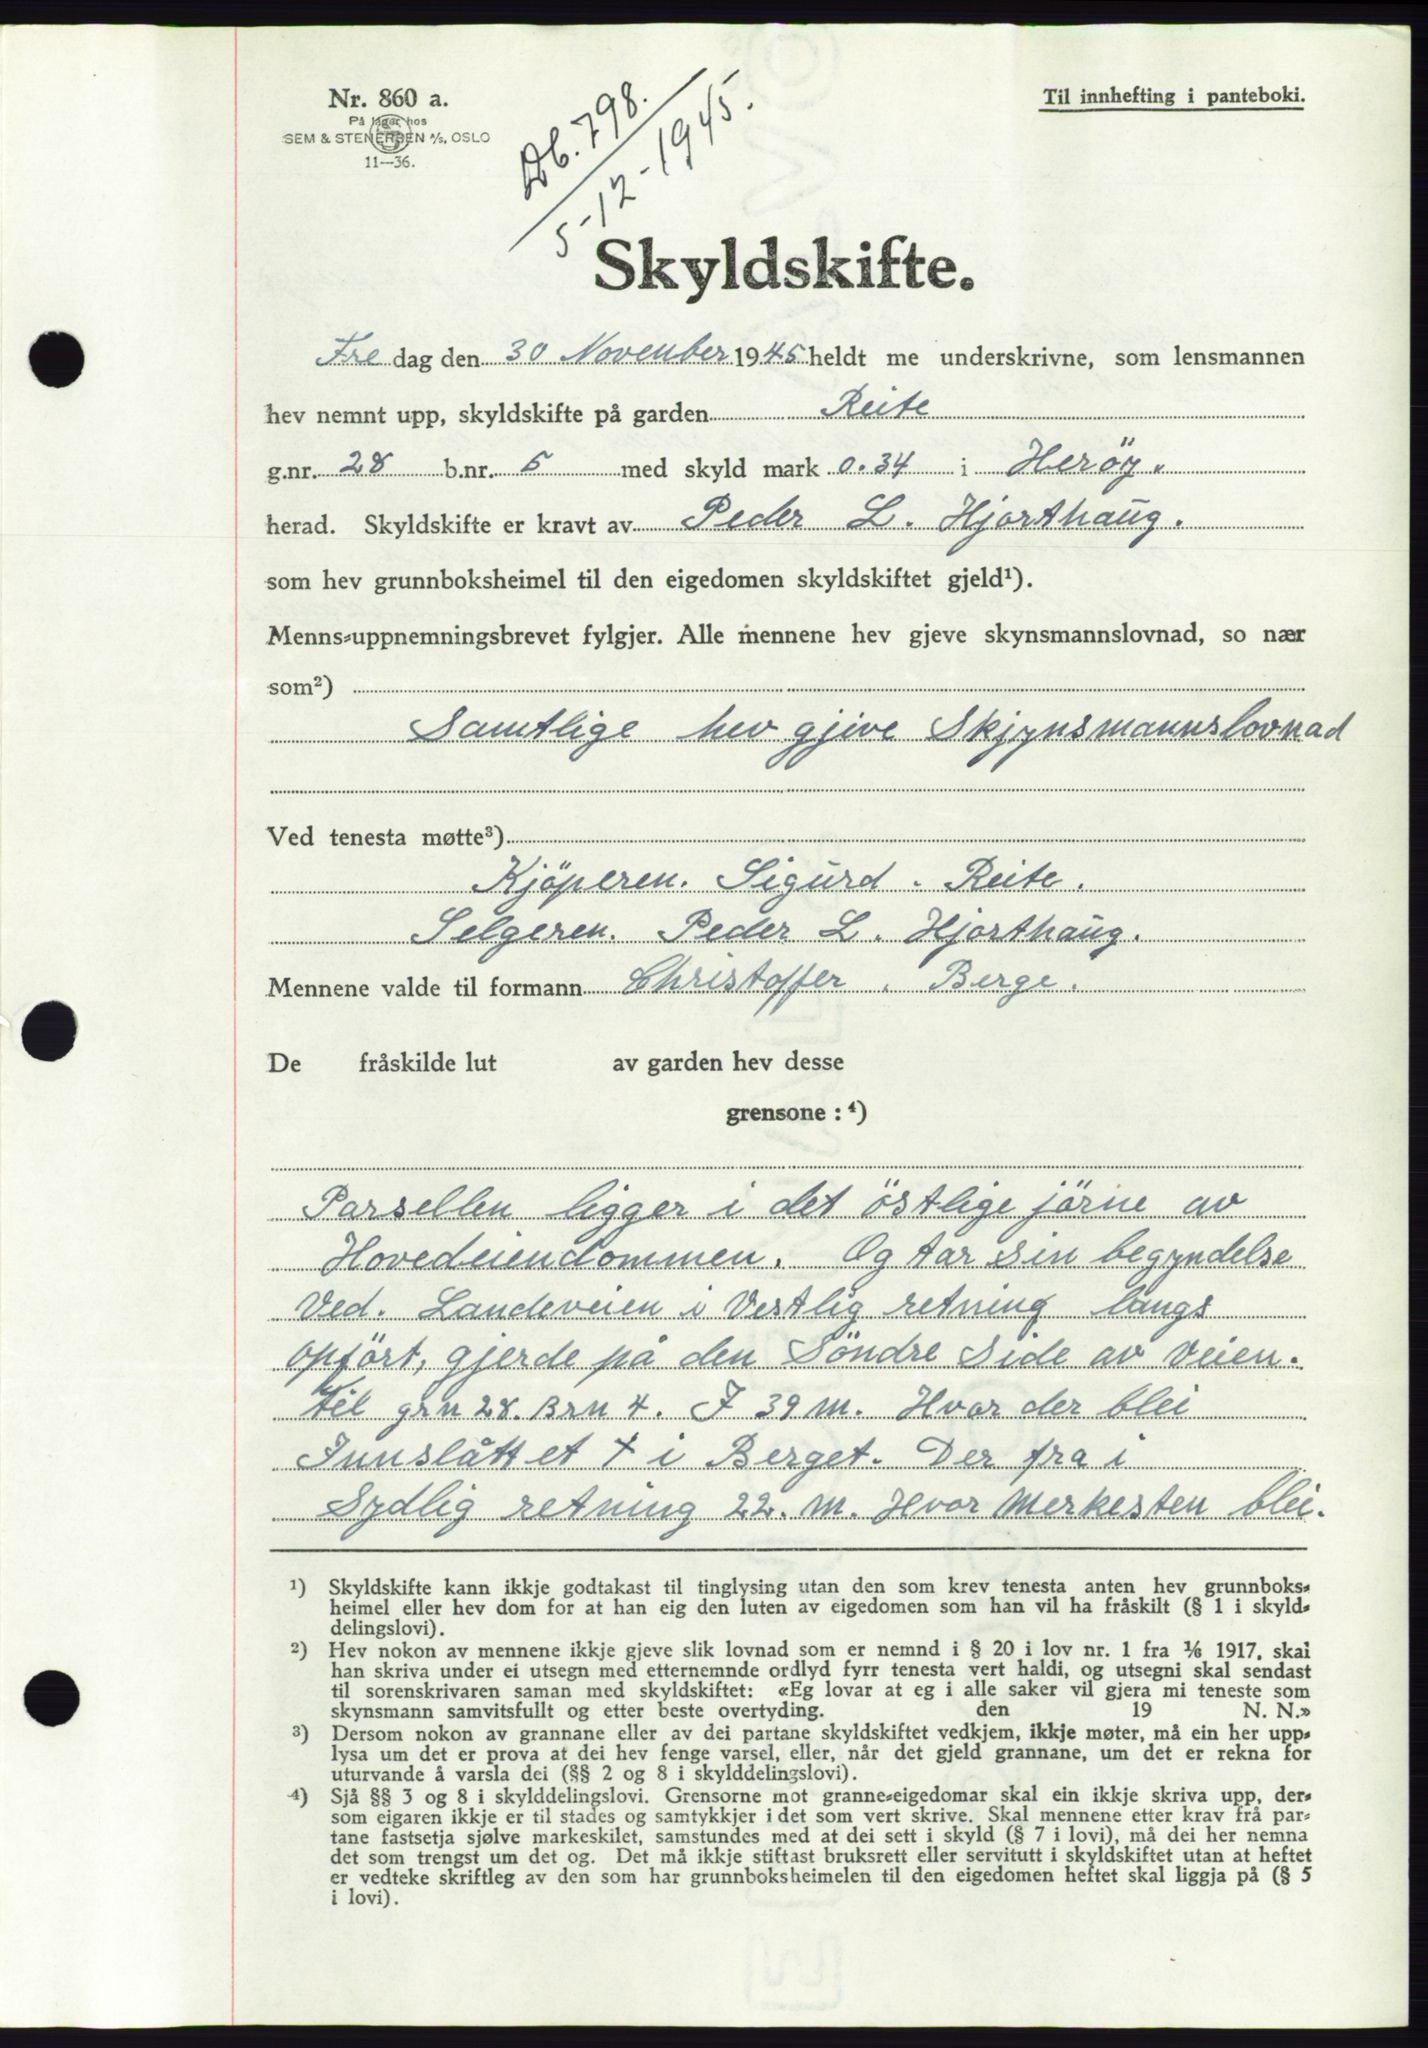 Nr. 860 a.
På lager hos
SEM & STENERSEN A/S, OSLO
11—36.
Db. 798.
5-12-1945.
Til innhefting i panteboki.
Skyldskifte.
Fre dag den 30 November 1945 heldt me underskrivne, som lensmannen
hev nemnt upp, skyldskifte på garden Reite
g.nr. 28 b.nr. 5 med skyld mark 0.34 i Heröy.
herad. Skyldskifte er kravt av Peder L. Hjorthaug.
som hev grunnboksheimel til den eigedomen skyldskiftet gjeld¹).
Menns-uppnemningsbrevet fylgjer. Alle mennene hev gjeve skynsmannslovnad, so nær
som²)
Samtlige hev gjive Skjynsmannslovnad
Ved tenesta møtte³)
Kjöperen. Sigurd. Reite.
Selgeren. Peder L. Hjorthaug.
Mennene valde til formann Christoffer. Berge.
De fråskilde lut av garden hev desse
grensone : ⁴)
Parsellen ligger i det östlige jörne av
Hovedeiendommen. Og tar sin begyndelse
Ved. Landeveien i Vestlig retning langs
opfört, gjerde på den Söndre Side av Veien.
til grn 28. Brn 4. I 39 m. Hvor der blei
Innslått et + i Berget. Der fra i
Sydlig retning 22. m. Hvor Merkesten blei.
¹) Skyldskifte kann ikkje godtakast til tinglysing utan den som krev tenesta anten hev grunnboks-
heimel eller hev dom for at han eig den luten av eigedomen som han vil ha fråskilt (§ 1 i skyld-
delingslovi).
²) Hev nokon av mennene ikkje gjeve slik lovnad som er nemnd i § 20 i lov nr. 1 fra 1/6 1917, skal
han skriva under ei utsegn med etternemnde ordlyd fyrr tenesta vert haldi, og utsegni skal sendast
til sorenskrivaren saman med skyldskiftet: «Eg lovar at eg i alle saker vil gjera mi teneste som
skynsmann samvitsfullt og etter beste overtyding. den 19 N. N.»
³) Dersom nokon av grannane eller av dei partane skyldskiftet vedkjem, ikkje møter, må ein her upp-
lysa um det er prova at dei hev fenge varsel, eller, når det gjeld grannane, um det er rekna for
uturvande å varsla dei (§§ 2 og 8 i skylddelingslovi).
⁴) Sjå §§ 3 og 8 i skylddelingslovi. Grensorne mot granne-eigedomar skal ein ikkje skriva upp, der-
som eigaren ikkje er til stades og samtykkjer i det som vert skrive. Skal mennene etter krav frå par-
tane fastsetja sjølve markeskilet, samstundes med at dei sett i skyld (§ 7 i lovi), må dei her nemna
det som trengst um det og. Det må ikkje stiftast bruksrett eller servitutt i skyldskiftet utan at heftet
er vedteke skriftleg av den som har grunnboksheimelen til den eigedomen heftet skal liggja på (§ 5
i lovi).